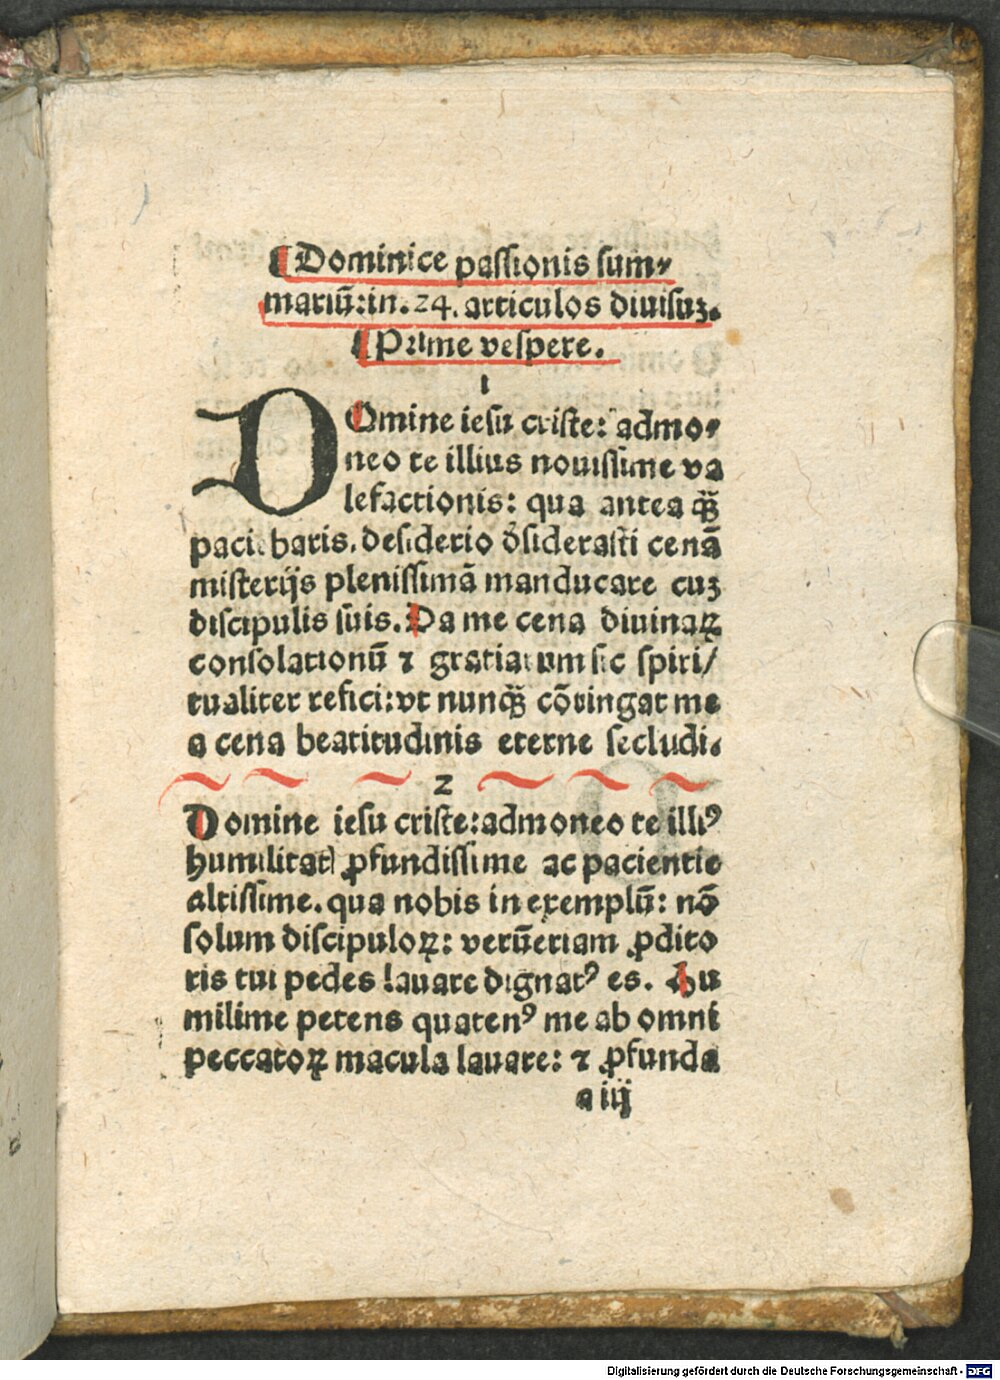 ¶Dominice passionis sum⸗
mariū:in.24.articulos diuisuꝫ.
¶Prime vespere.
1
DOmine iesu criste: admo⸗
neo te illius nouissime va
lefactionis: qua antea qͣ̄
paciebaris. desiderio d̓siderasti cenā
misterijs plenissimā manducare cuꝫ
discipulis suis. Da me cena diuinaꝝ
consolationū ⁊ gratiarum sic spiri/
tualiter refici:vt nunqͣ̄ cōtingat me
a cena beatitudinis eterne secludi.
2
Domine iesu criste:admoneo te illiꝰ
humilitatꝭ ꝓfundissime ac pacientie
altissime.qua nobis in exemplū: nō
solum discipuloꝝ: verūetiam ꝓdito
ris tui pedes lauare dignatꝰ es. Hu
milime petens quatenꝰ me ab omni
peccatoꝝ macula lauare: ⁊ ꝓfunda
a iij
Digitalisierung gefördert durch die Deutsche Forschungsgemeinschaft - DFG